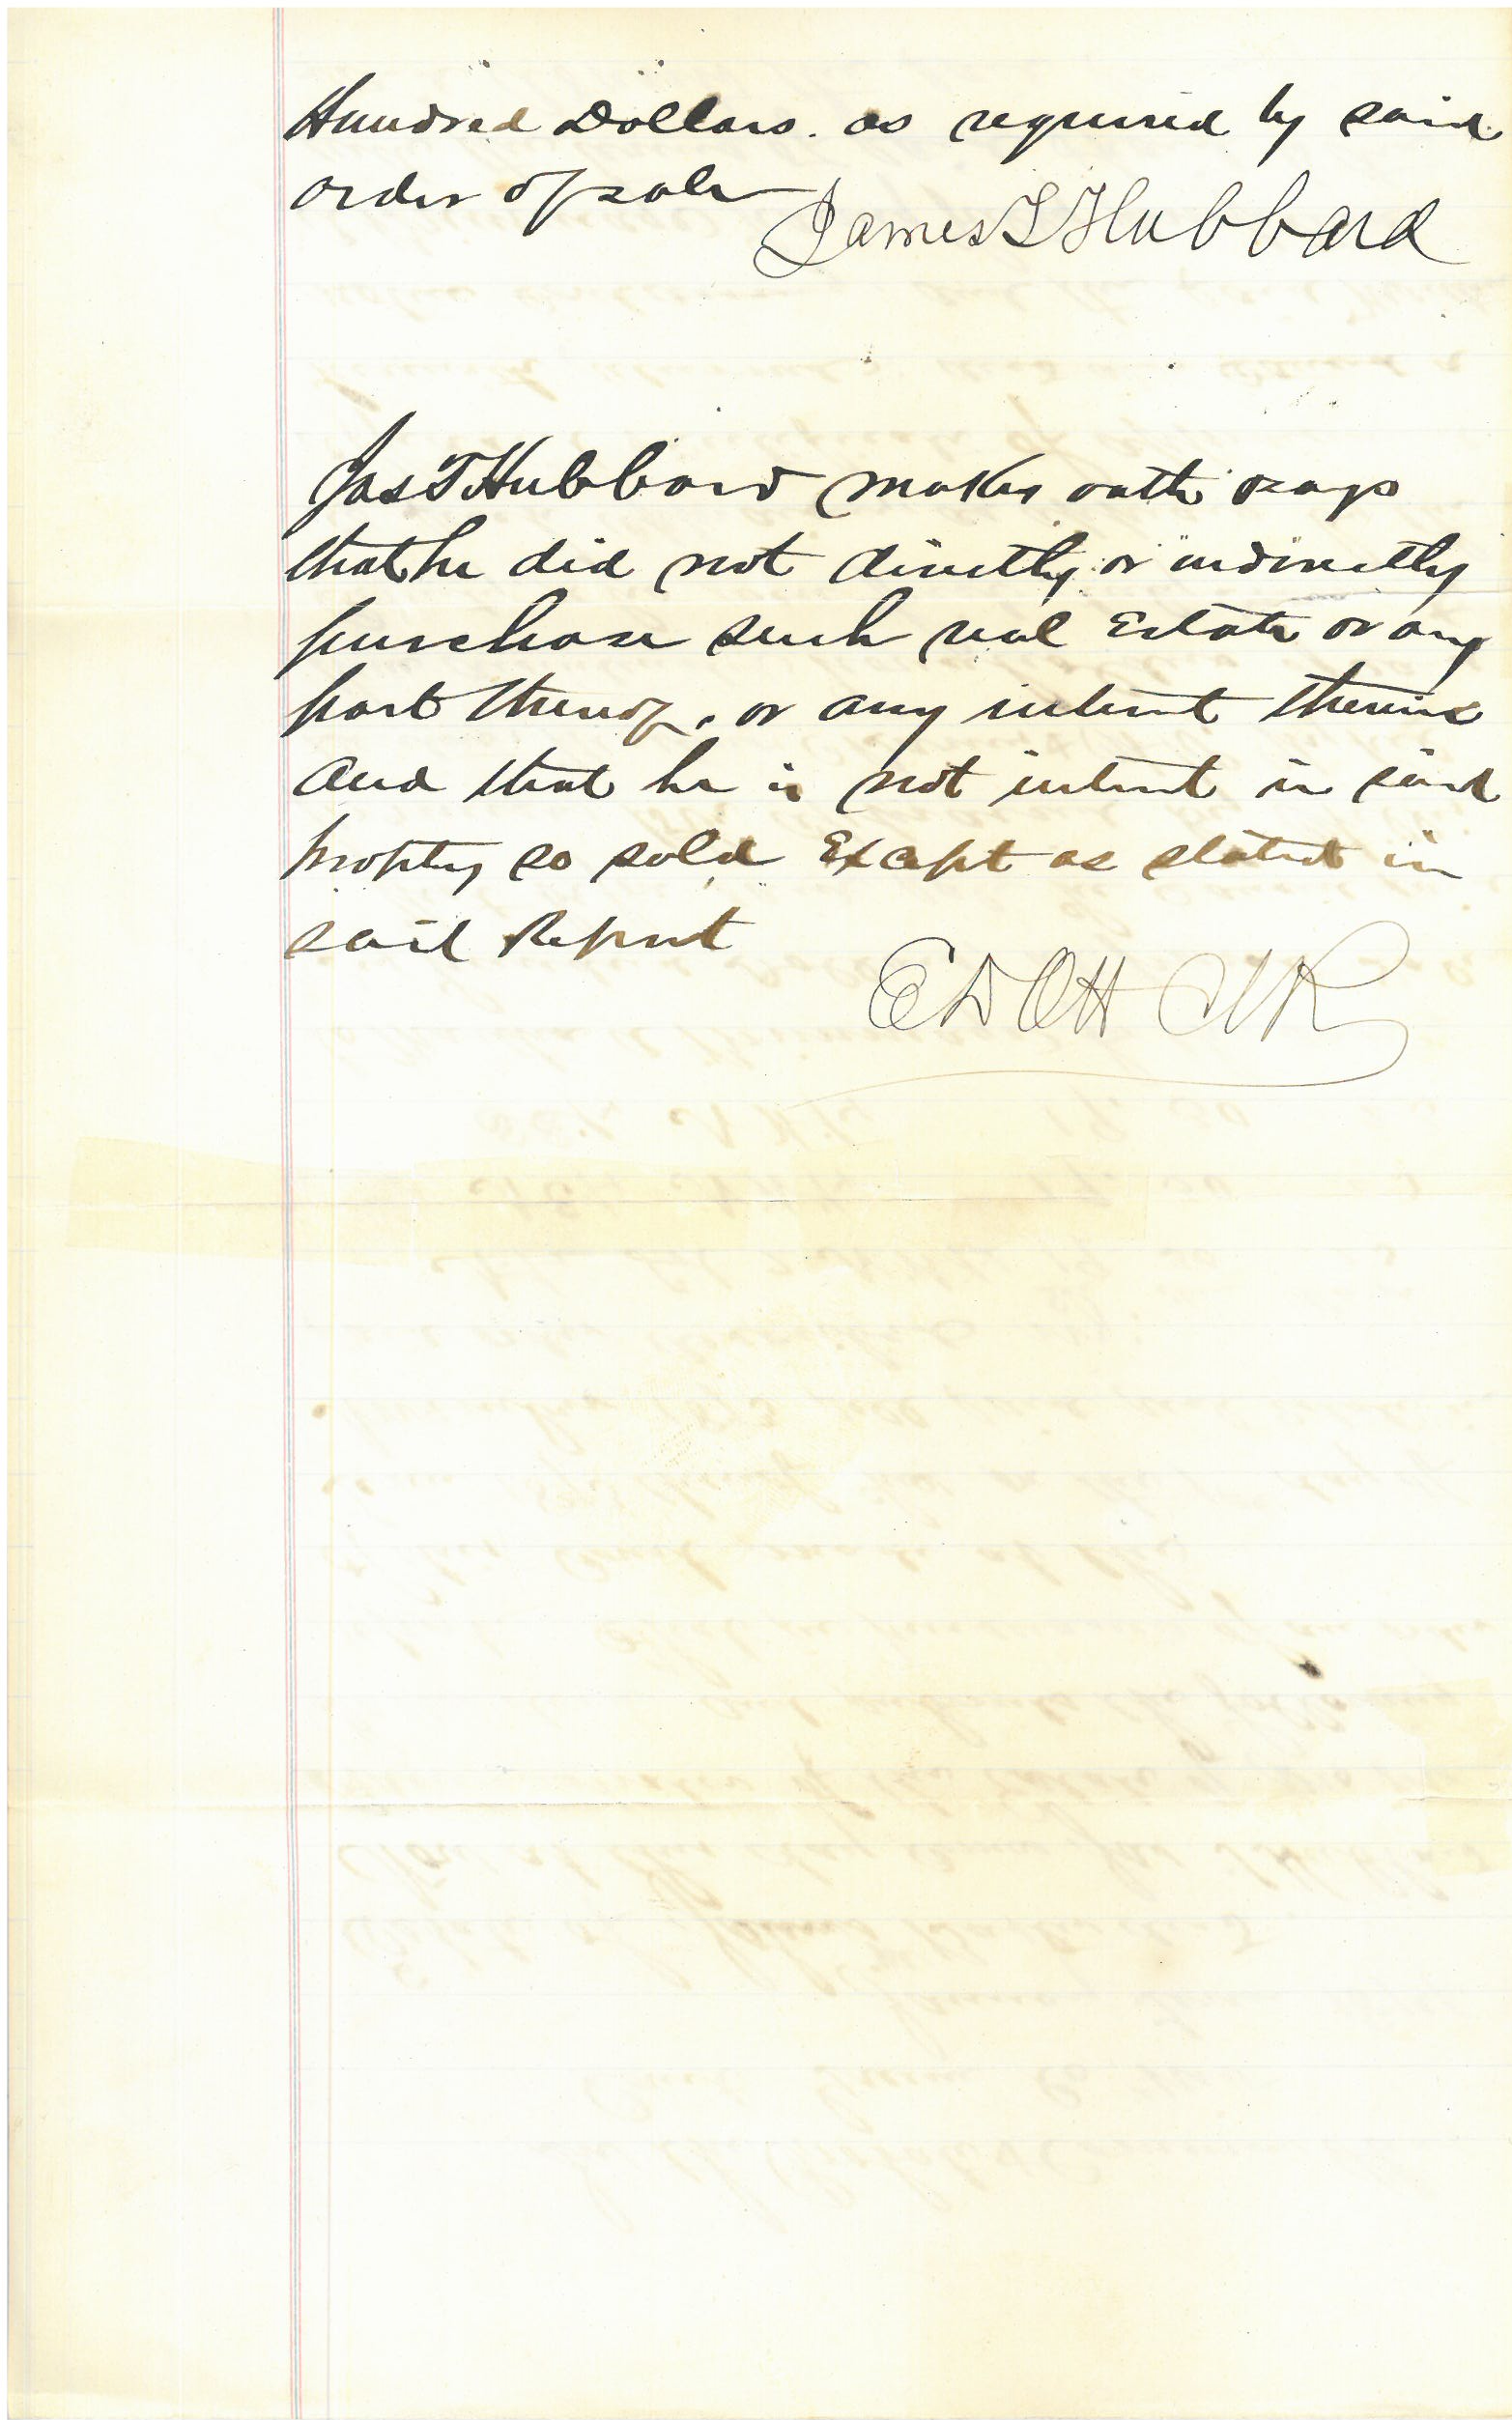 Hundred Dollars. as required by said
order of sale
James T Hubbard
Jas T Hubbard makes oath & says
that he did not directly or indirectly
purchase such real Estate or any
part thereof, or any interest therein
and that he is not interest in said
property so sold Except as stated in
said Report
E D Ott